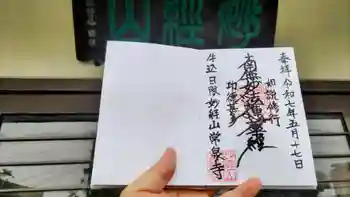 妙經山
奉拝 令和七年五月十七日
如説修行
南無妙法蓮華経
功徳甚多
牛込日限妙経山常泉寺